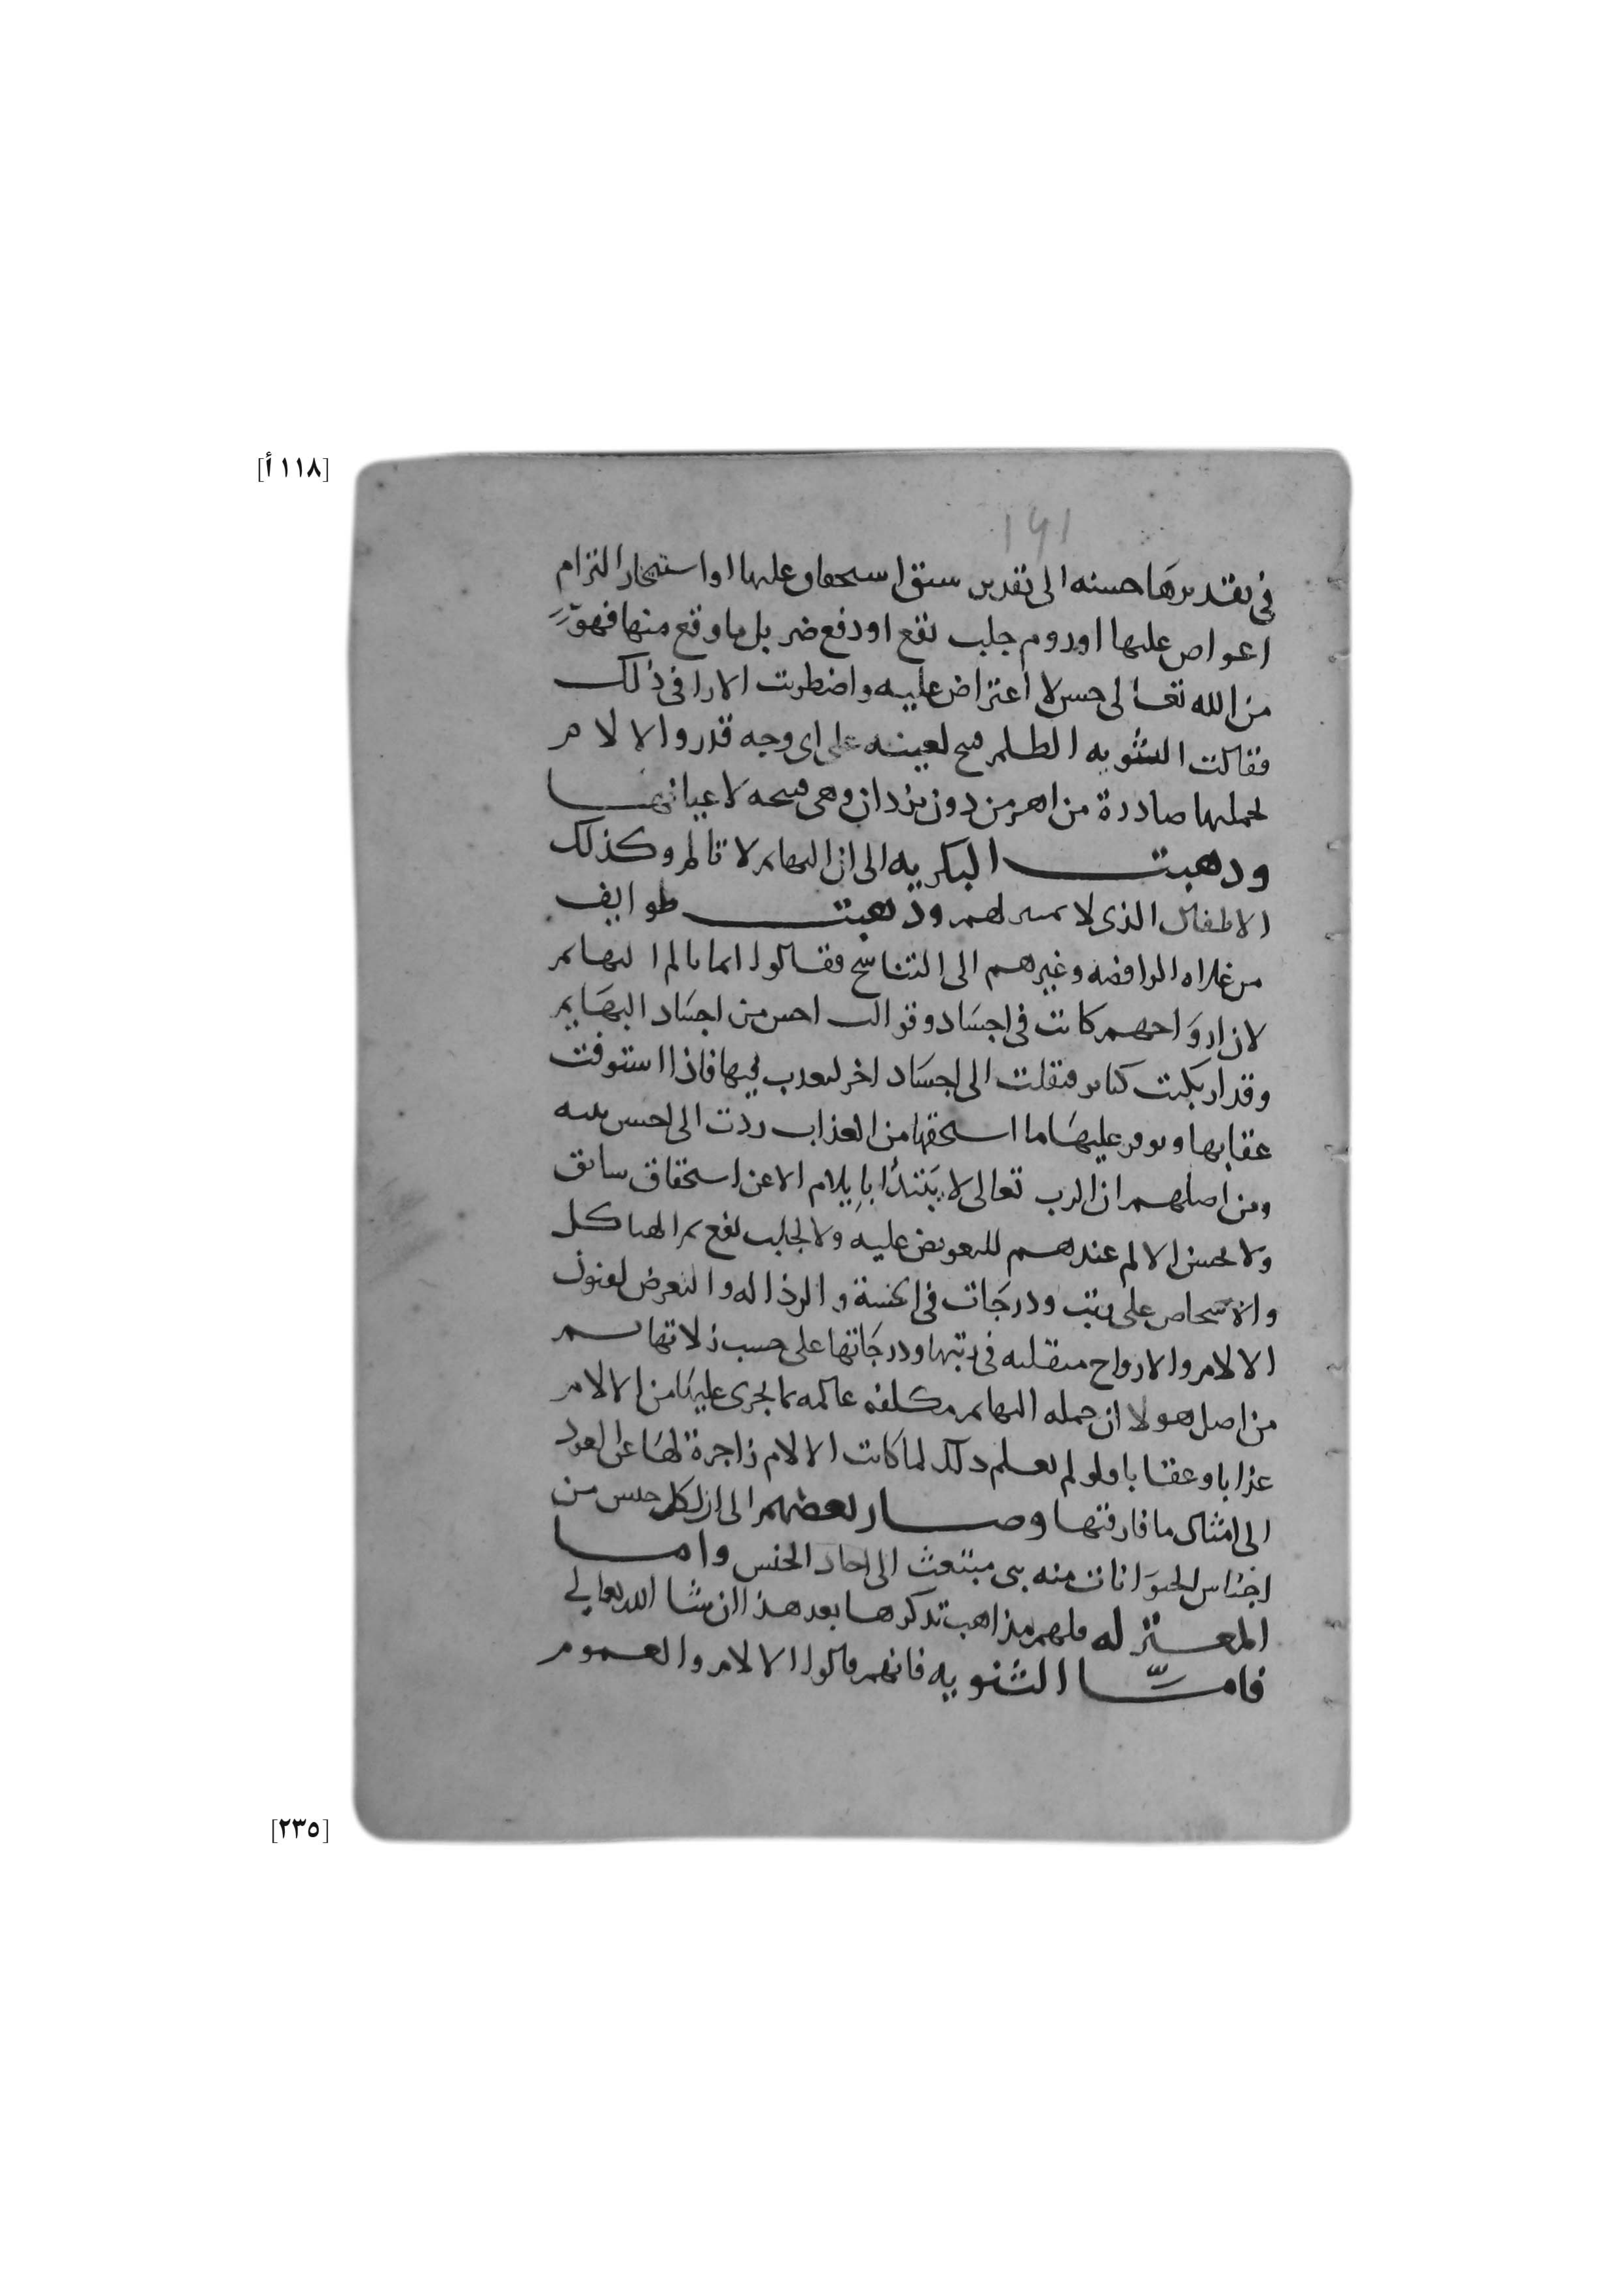 [١١٨ أ]
١٩١
في تقديرها حسنه الى تقدير سبق استحقاق عليها او استيجار التزام
اعواض عليها او روم جلب نفع او دفع ضر بل ما وقع منها فهو
من الله تعالى حسن لا اعتراض عليه واضطربت الارا في ذلك
فقالت الثنويه الظلم قبيح لعينه على اي وجه قدر والالام
بجملتها صادرة من اهرمن دون يزدان وهي قبيحه لاعيانها
وذهبت البكريه الى ان البهايم لا تالم وكذلك
الاطفال الذي لا تمييز لهم وذهبت طوايف
من غلاه الرافضه وغيرهم الى التناسخ فقالوا انما تالم البهايم
لان ارواحهم كانت في اجساد وقوالب احسن من اجساد البهايم
وقد ارتكبت كباير فنقلت الى اجساد اخر لتعذب فيها فاذا استوفت
عقابها وتوفر عليها ما استحقتها من العذاب ردت الى احسن بنيه
ومن اصلهم ان الرب تعالى لا يبتدأ بإيلام الا عن استحقاق سابق
ولا يحسن الالم عندهم للتعويض عليه ولا لجلب نفع ثم الهياكل
والاشخاص على رتب ودرجات في الخسة والرذاله والتعرض لفنون
الالام والارواح متقلبه في رتبها ودرجاتها على حسب زلاتها ثم
من اصل هولا ان جمله البهايم مكلفه عالمه بما يجري عليها من الالام
عذابا وعقابا ولو لم تعلم ذلك لما كانت الالام زاجرة لها عن العود
الى امثال ما فارقتها وصار بعضهم الى ان لكل جنس من
اجناس الحيوانات منه نبي مبتعث الى احاد الجنس واما
المعتزله فلهم مذاهب نذكرها بعد هذا ان شا الله تعالى
فامّا الثنويه فانهم قالوا الالام والغموم
[٢٣٥]